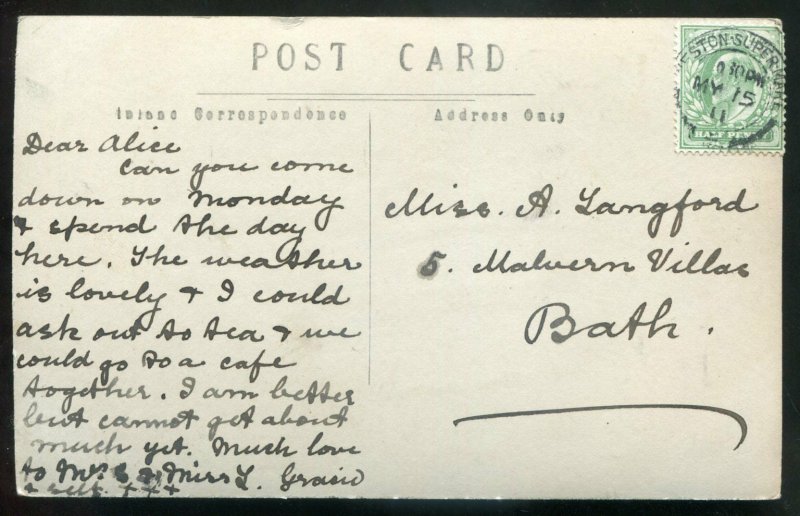 POST CARD
Inland Correspondence
Address Only
WESTON-SUPER-MARE
930PM
MY 15
11
HALF PENNY
Dear Alice
can you come
down on Monday
& spend the day
here. The weather
is lovely & I could
ask out to tea & we
could go to a cafe
together. I am better
but cannot get about
much yet. Much love
to Mrs & Miss L.
& self. + + +
Miss. A. Langford
5. Malvern Villas
Bath.